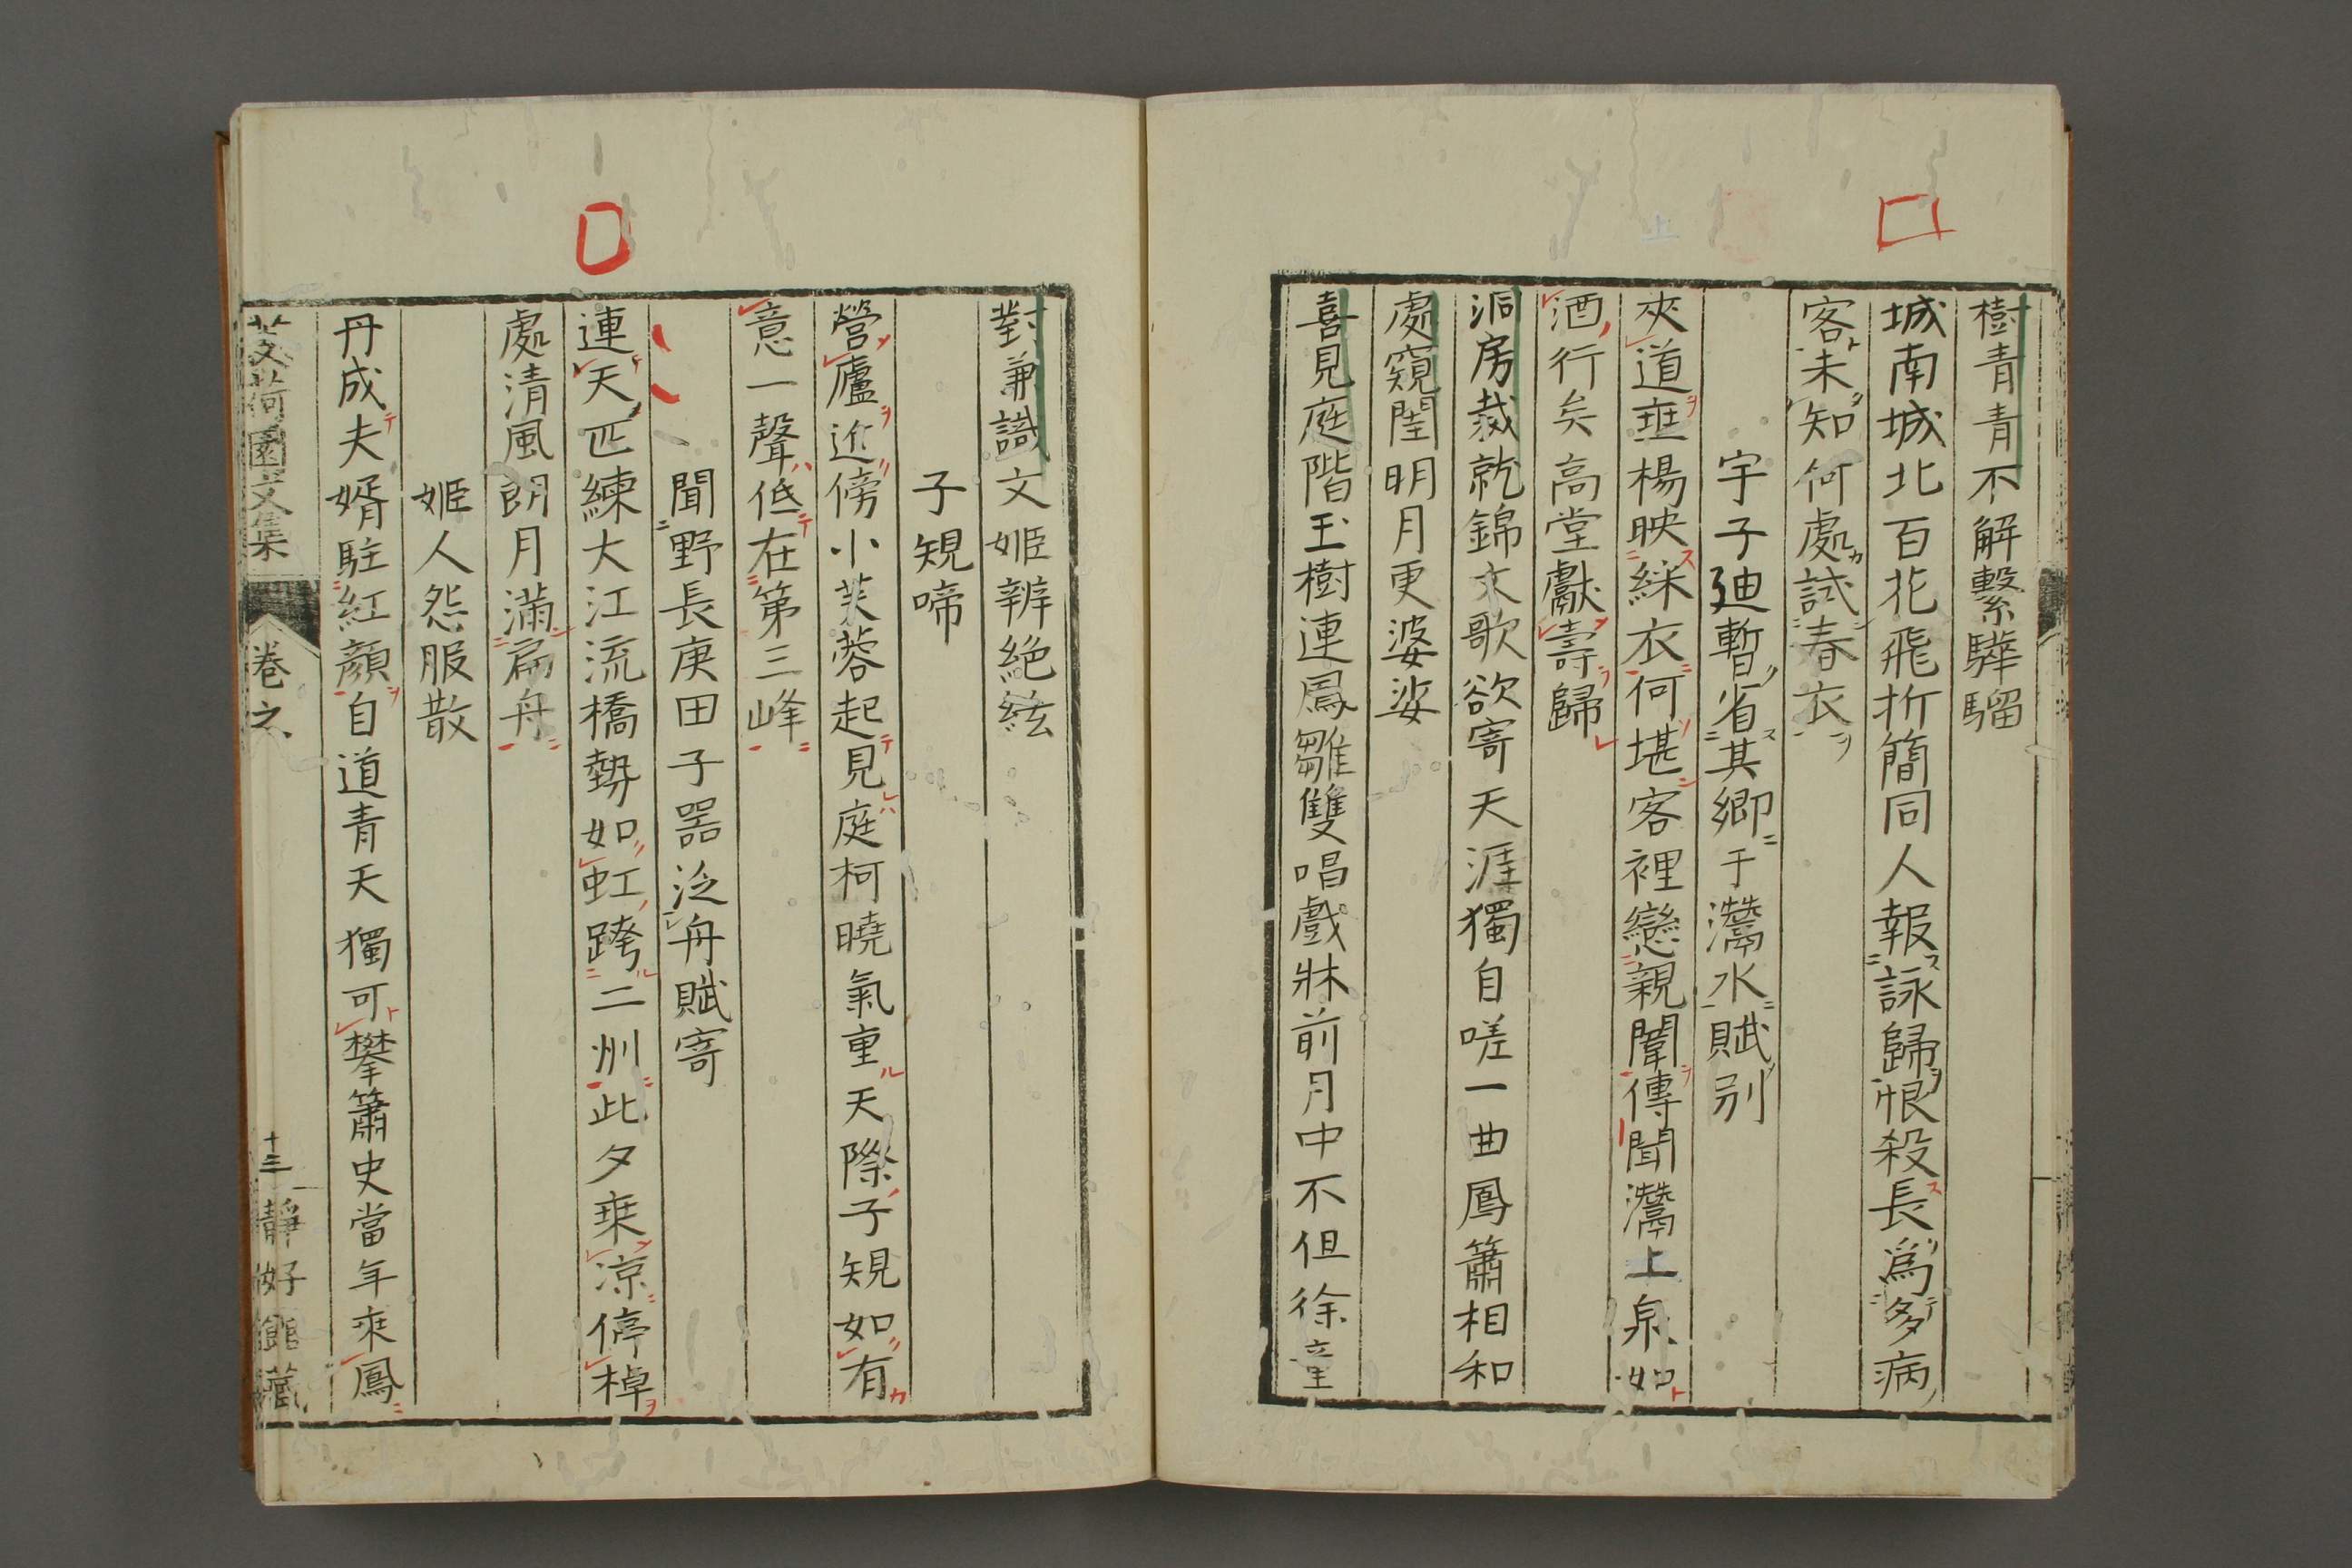 樹青青不解繫驊騮
城南城北百花飛折簡同人報詠歸恨殺長爲多病
客未知何處試春衣
宇子廸暫省其鄉于灊水賦別
夾道垂楊映綵衣何堪客裡戀親闈傳聞灊上泉如
酒行矣高堂獻壽歸
洞房裁就錦文歌欲寄天涯獨自嗟一曲鳳簫相和
處窺閨明月更婆娑
喜見庭階玉樹連鳳雛雙唱戲牀前月中不但徐童
對兼識文姬辨絶絃
子規啼
營廬近傍小芙蓉起見庭柯曉氣重天際子規如有
意一聲低在第三峰
聞野長庚田子器泛舟賦寄
連天匹練大江流橋勢如虹跨二州此夕乗涼停棹
處清風朗月滿扁舟
姬人怨服散
丹成夫婿駐紅顔自道青天獨可攀簫史當年乘鳳
芰荷園文集
卷之
十三
靜好館藏